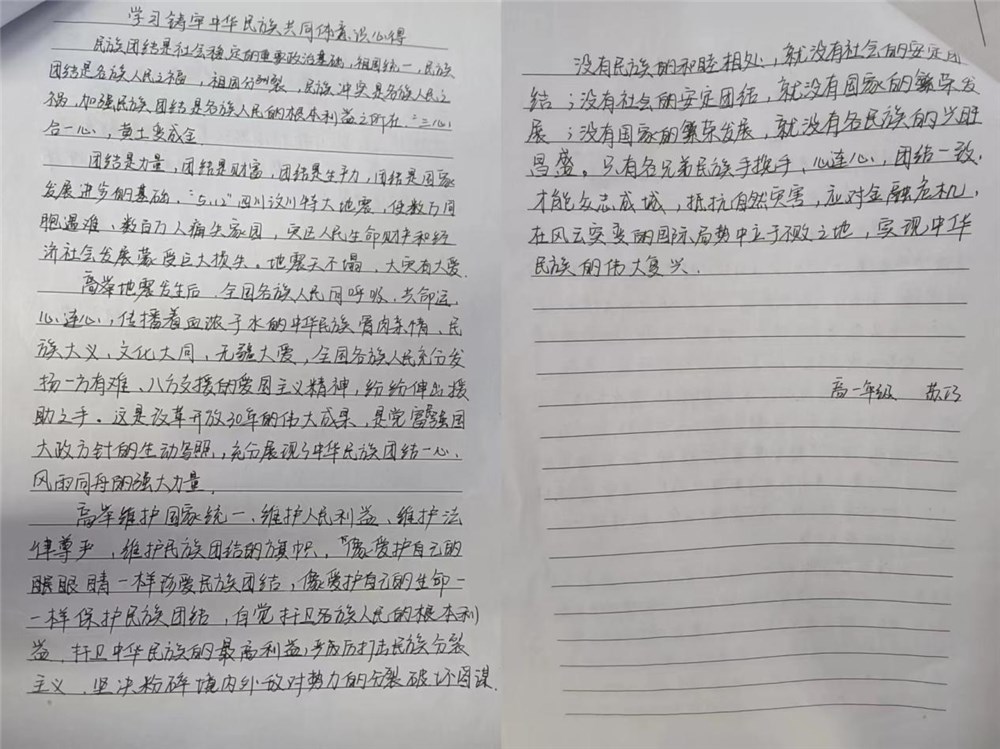 学习铸牢中华民族共同体意识心得
民族团结是社会稳定的重要政治基础，祖国统一，民族
团结是各族人民之福，祖国分裂，民族冲突是各族人民之
祸，加强民族团结是各族人民的根本利益之所在，“三心
合一心，黄土变成金.
团结是力量，团结是财富，团结是生产力，团结是国家
发展进步的基础，“5,12”四川汶川特大地震，使数万同
胞遇难、数百万人痛失家园，灾区人民生命财产和经
济社会发展蒙受巨大损失。地震天不塌，大灾有大爱.
高举地震发生后，全国各族人民同呼吸、共命运，
心连心，传播着血浓于水的中华民族骨肉亲情、民
族大义，文化大同，无疆大爱，全国各族人民充分发
扬一方有难、八方支援的爱国主义精神，纷纷伸出援
助之手。这是改革开放30年的伟大成果，是党富强国
大政方针的生动写照，充分展现了中华民族团结一心、
风雨同舟的强大力量.
高举维护国家统一、维护人民利益、维护法
律尊严，维护民族团结的旗帜，“像爱护自己的
眼眼睛一样珍爱民族团结，像爱护自己的生命一
一样保护民族团结，自觉扞卫各族人民的根本利
益，扞卫中华民族的最高利益，严厉打击民族分裂
主义、坚决粉碎境内外敌对势力的分裂破坏图谋.
没有民族的和睦相处，就没有社会的安定团
结；没有社会的安定团结，就没有国家的繁荣发
展；没有国家的繁荣发展，就没有各民族的兴旺
昌盛。只有各兄弟民族手挽手、心连心，团结一致，
才能众志成城，抵抗自然灾害，应对金融危机，
在风云突变的国际局势中立于不败之地，实现中华
民族的伟大复兴.
高一年级 苏巧